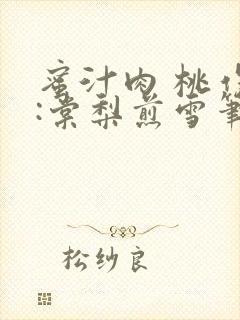 蜜汁肉桃作
:棠梨煎雪筆
松纱良